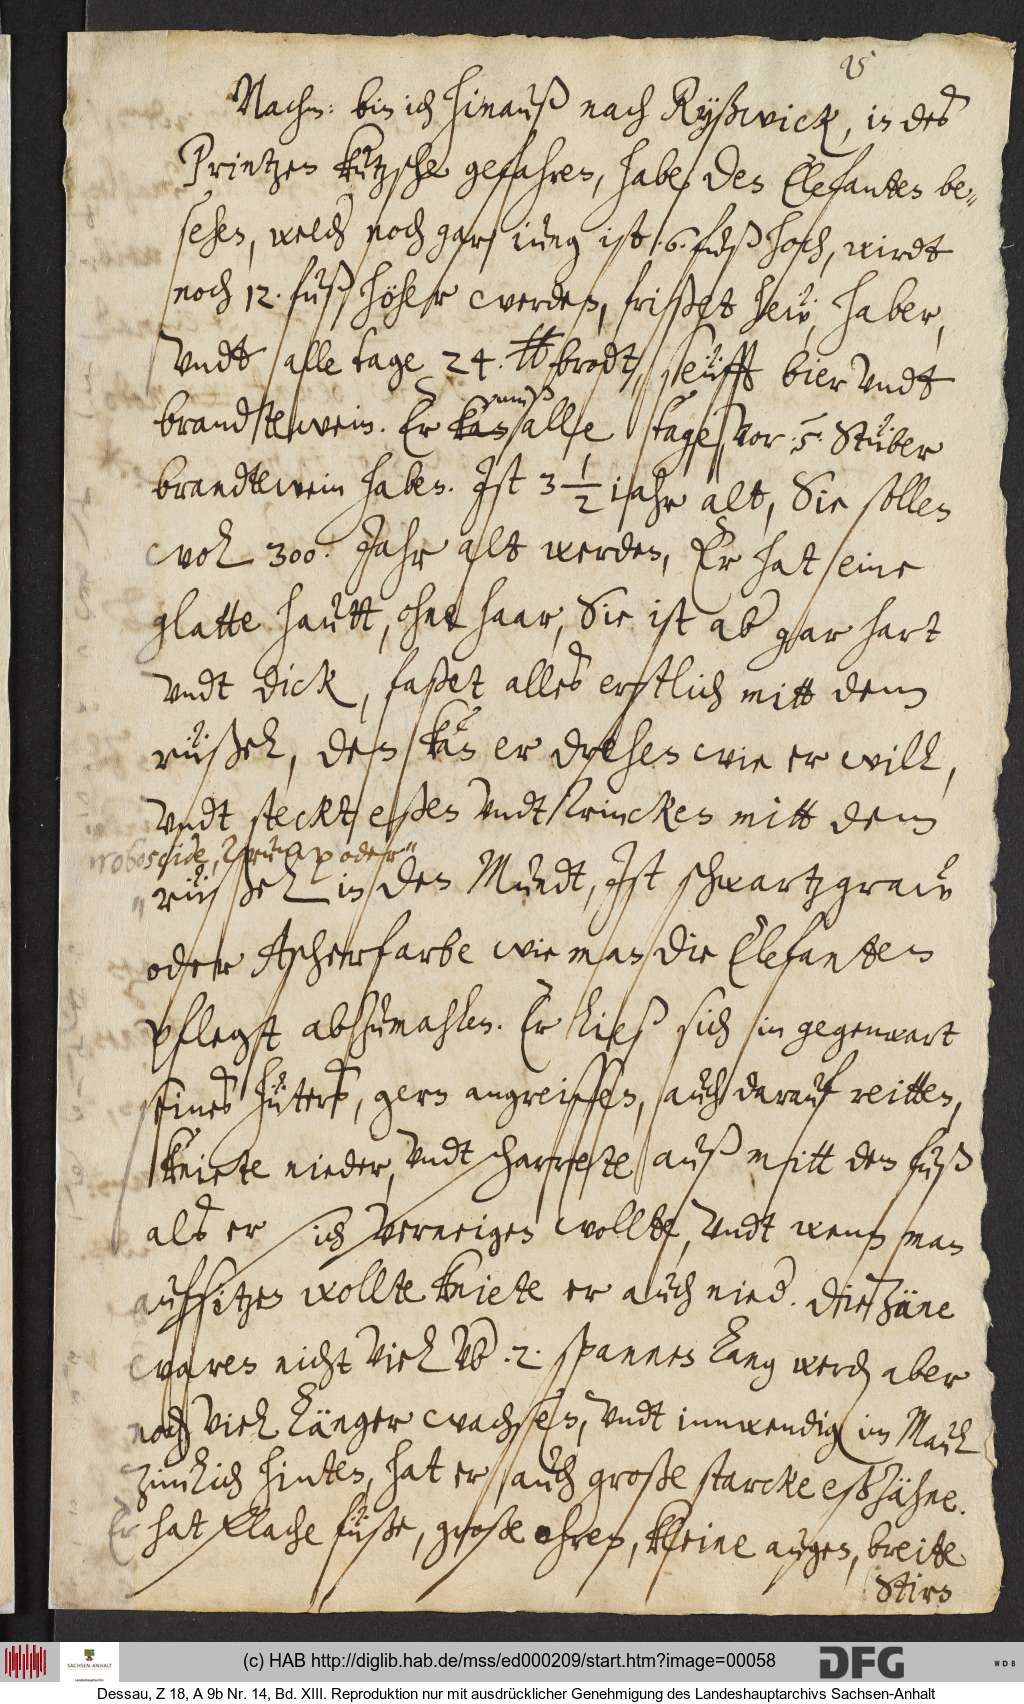 25
Nachm: bin ich hinauß nach Ryßwick, in des
Printzen kutzsche gefahren, habe den Elefanten be-
sehen, welch noch gar iung ist .6. fuß hoch, wirdt
noch 12. fuß höher werden, frißet heu, haber,
Vndt alle tage 24. ℔ brodt, seufft bier Vndt
muß
brandtewein. Er kan alle tage, vor .5. Stüber
brandtewein haben. Ist 3 1/2 iahr alt, Sie sollen
wol 300. Jahr alt werden, Er hat eine
glatte hautt, ohne haar, Sie ist ab gar hart
Vndt dick, faßet alles erstlich mitt dem
rüßel, den kan er drehen wie er will,
Vndt steckt eßen Vndt trincken mitt dem
oder
rüßel in den Mundt, Ist schwartzgrau
oder Ascherfarbe wie man die Elefanten
pflegt abzumahlen. Er ließ sich in gegenwart
seines hüters, gern angreiffen, auch darauf reitten,
kniete nieder, Vndt scharrete auß mitt den fuß
als er sich verneigen wollte, Vndt wenn man
auffsitzen wollte kniete er auch nied. die Zäne
waren nicht viel üb .2. spannen lang werden aber
noch viel länger wachsen, Vndt innwendig im Maul
zimlich hinten, hat er auch große starcke eßzähne.
Er hat flache füße, große ohren, kleine augen, breitte
Stirn
SACHSEN-ANHALT
(c) HAB http://diglib.hab.de/mss/ed000209/start.htm?image=00058
DFG
WDB
Dessau, Z 18, A 9b Nr. 14, Bd. XIII. Reproduktion nur mit ausdrücklicher Genehmigung des Landeshauptarchivs Sachsen-Anhalt